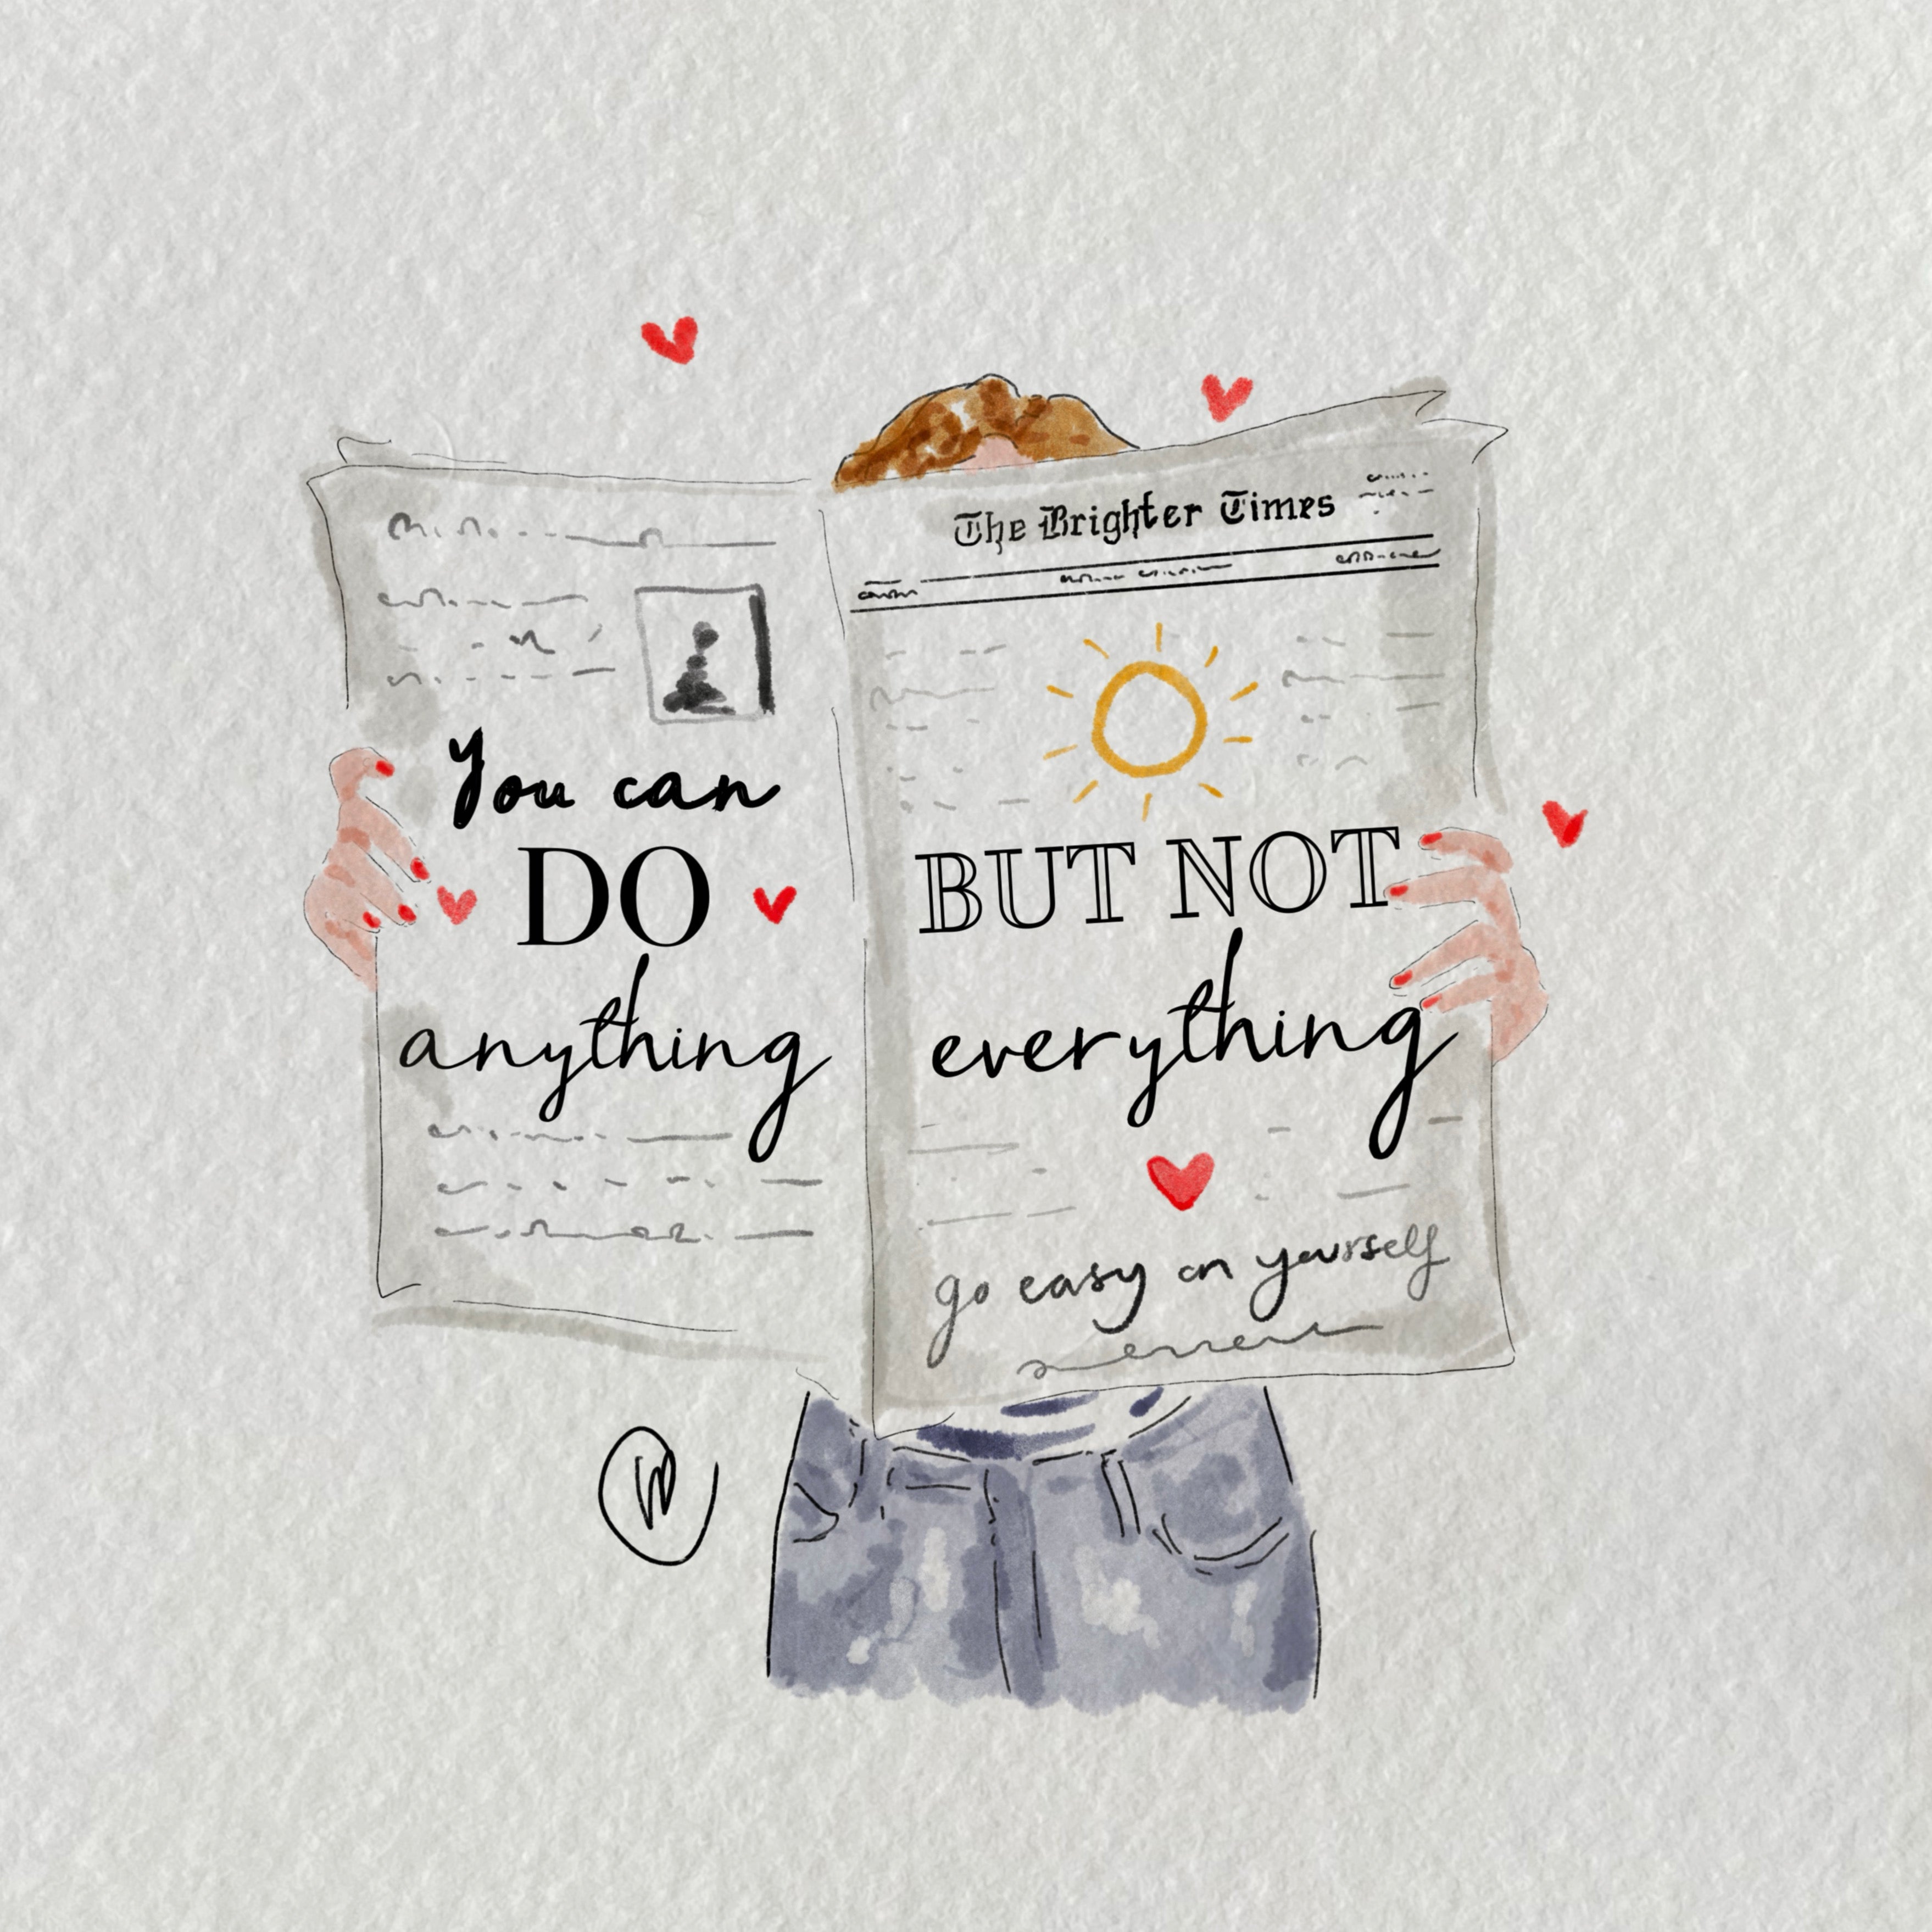 You can
DO
anything
The Brighter Times
BUT NOT
everything
go easy on yourself